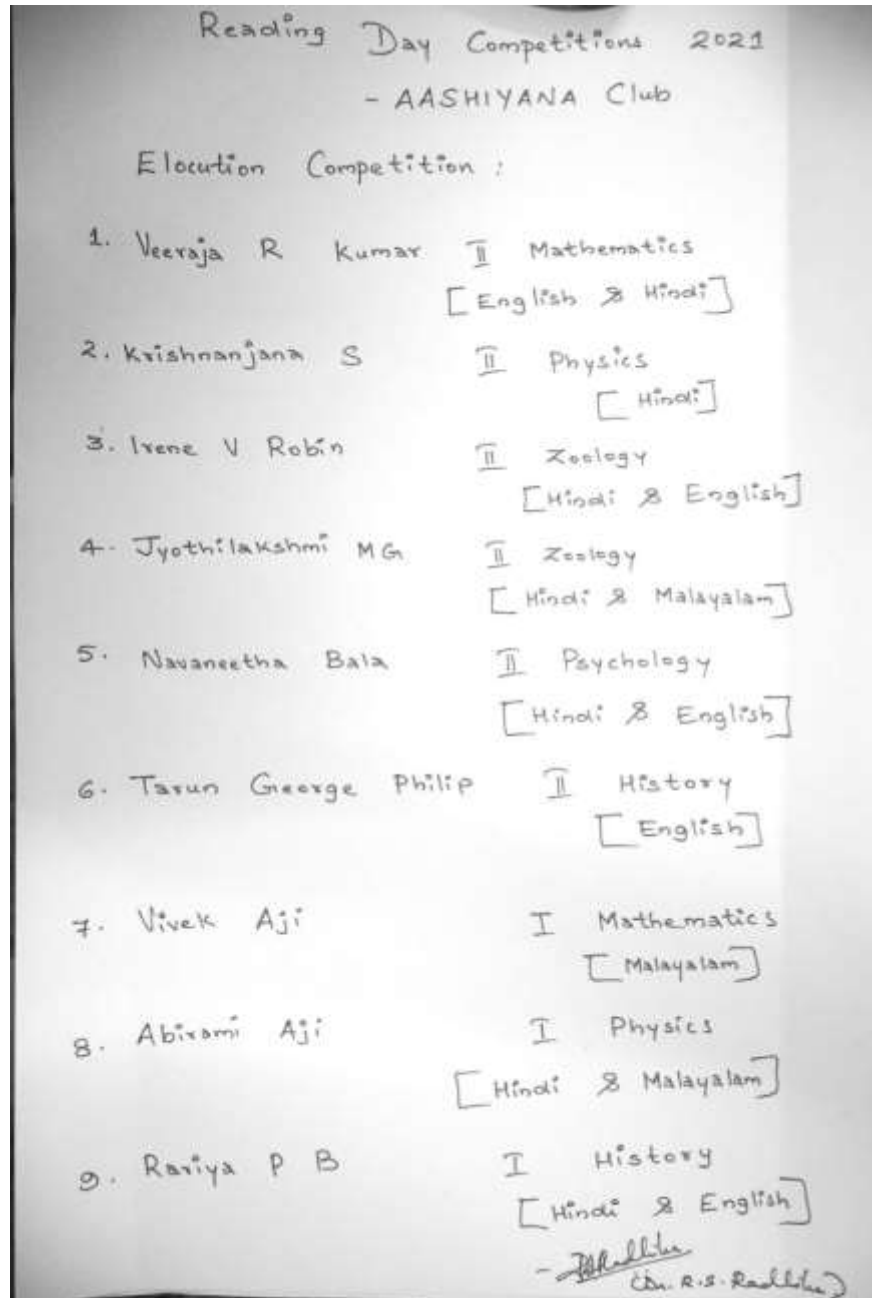 Reading Day Competitions 2021
- AASHIYANA Club
Elocution Competition :
1. Veeraja R Kumar II Mathematics
[English & Hindi]
2. Krishnanjana S II Physics
[Hindi]
3. Irene V Robin II Zoology
[Hindi & English]
4. Jyothilakshmi MG II Zoology
[Hindi & Malayalam]
5. Navaneetha Bala II Psychology
[Hindi & English]
6. Tarun George Philip II History
[English]
7. Vivek Aji I Mathematics
[Malayalam]
8. Abirami Aji I Physics
[Hindi & Malayalam]
9. Rariya P B I History
[Hindi & English]
(Dr. R.S. Radhika)